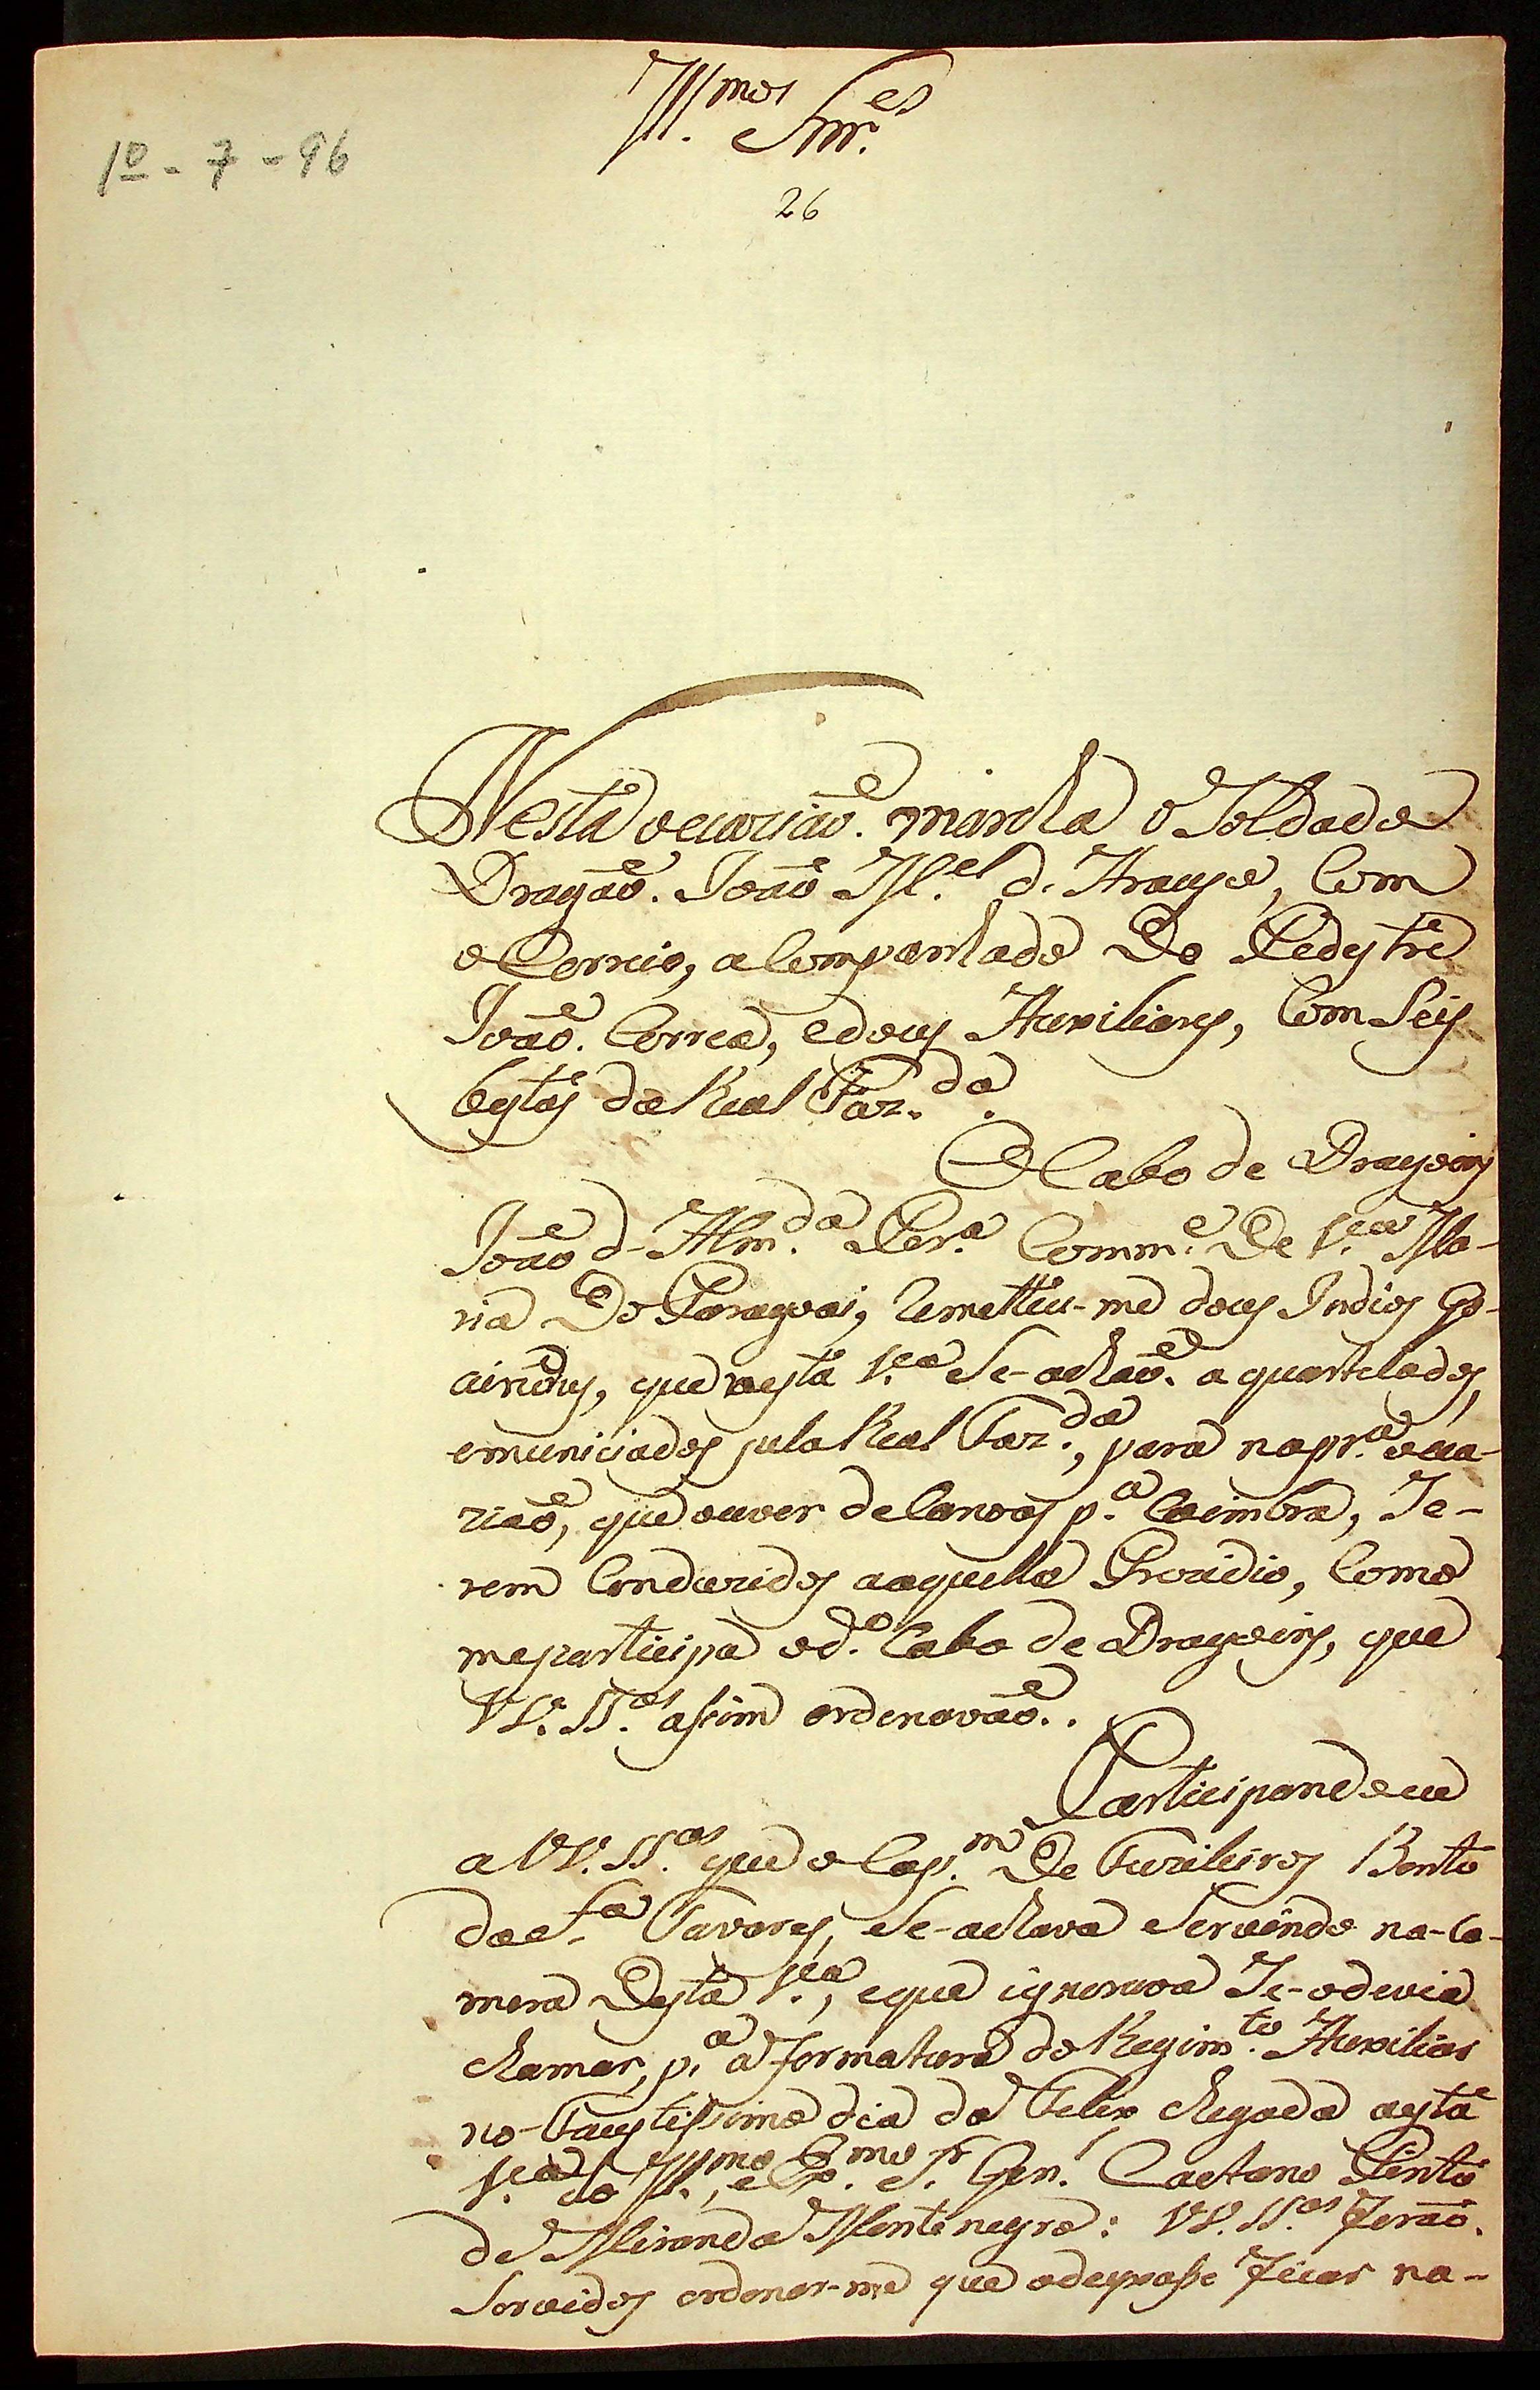 Ill.mos Snr.es
1º - 7 - 96
26
Nesta occazião. marcha o Soldado
Dragão. João M.el d'Araujo, Com
o Correio, aCompanhado Do Pedestre
João. Correa, e dous Auxiliares, Com Seis
bestas da Real Faz.da.
O Cabo de Dragoins
João d'Alm.da Per.a Comm.e De V.a Ma-
ria Do Paraguai, Remetteu-me dous Indios Go-
que nesta V.a Se-achão. aquartelados,
emuniciados pela Real Faz.da, para na pr.a occa-
zião, que ouver de Canoas p.a Coimbra, Se-
rem Conduzidos aaquelle Prezidio, Como
meparticipa o d.o Cabo de Dragoins, que
VV. SS.as assim ordenavão..
Participando eu
a VV. SS.as que o Cap.m De Fuzileiros Bento
da S.a Tavares, Se-achava Servindo na-Ca-
mera Desta V.a, eque ignorava Se-odevia
chamar, p.a a formatura do Regim.to Auxiliar
no-Faustissimo dia da Felix chegada aesta
V.a do Ill.mo, e Ex.mo S.r Gen.l Caetano Pinto
de Miranda Montenegro: VV. SS.as Ferão.
Servidos ordenar-me que odeyxasse ficar na-